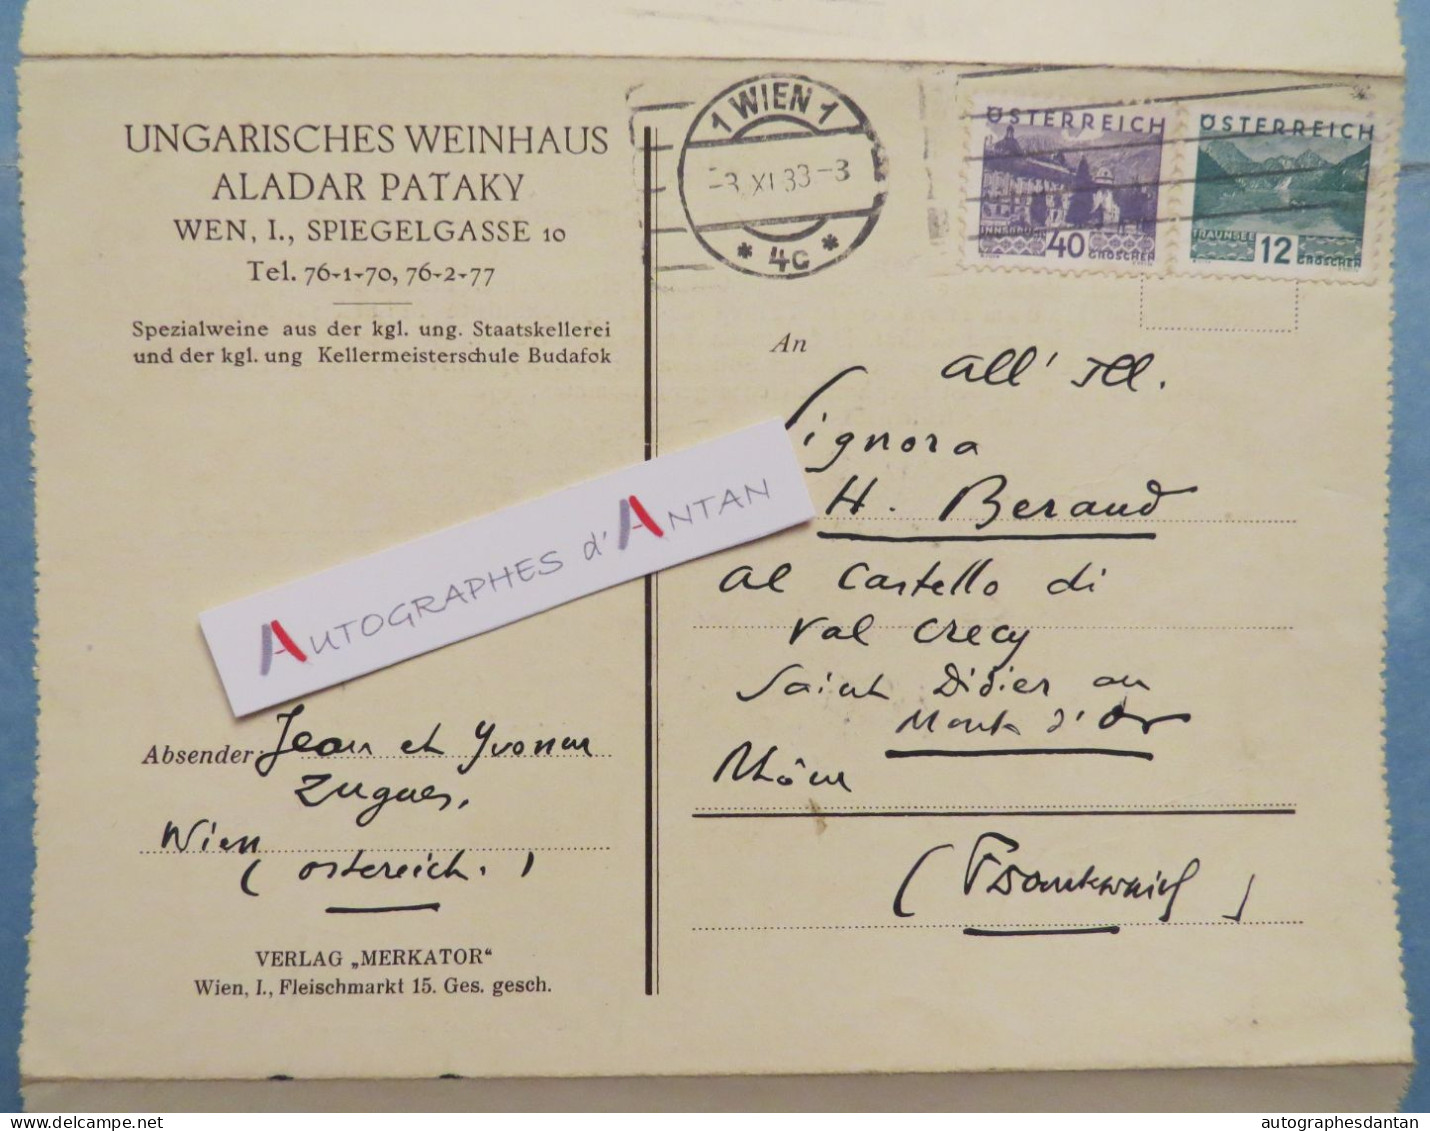 UNGARISCHES WEINHAUS
ALADAR PATAKY
WEN, I., SPIEGELGASSE 10
Tel. 76-1-70, 76-2-77
Spezialweine aus der kgl. ung. Staatskellerei
und der kgl. ung Kellermeisterschule Budafok
1 WIEN 1
-3. XI. 33-3
* 4c *
ÖSTERREICH
INNSBRUCK 40 GROSCHEN
ÖSTERREICH
TRAUNSEE 12 GROSCHEN
An
all' Ill.
Signora
H. Beraud
al Castello di
Val Crecy
Saint Didier au
Mont d'Or
Rhône
(Frankreich)
AUTOGRAPHES d'ANTAN
Absender: Jean et Yvonne
Zugues,
Wien
(Osterreich.)
VERLAG „MERKATOR“
Wien, I., Fleischmarkt 15. Ges. gesch.
autographesdantan